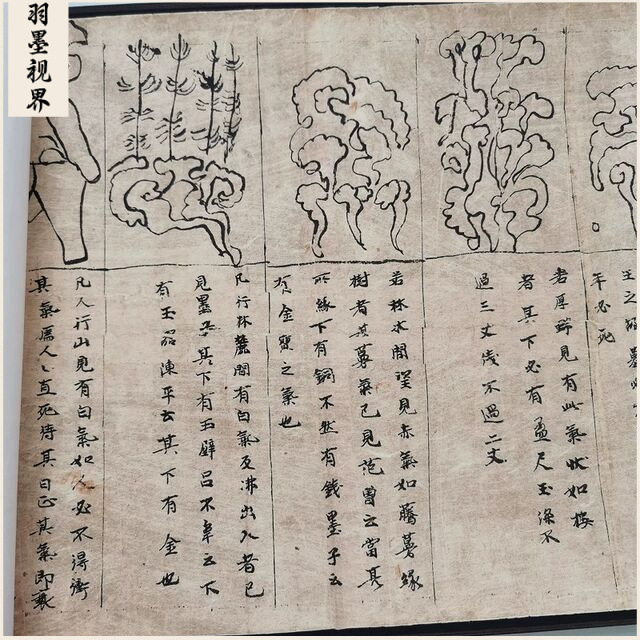 羽墨视界
年必死
若屋
見有此氣收如樓
者其下必有盈尺玉深不
過三丈淺不過二丈
若林木間望見赤氣如騰蔓緣
樹者其蔓氣已見范曾云當其
所緣下有銅不然有錢墨子云
有金寶之氣也
凡行林麓間有白氣及沸出入者已
見墨子其下有玉璧呂不韋云下
有玉器陳平云其下有金也
凡人行山見有白氣如人必不得衝
其氣為人〻直死待其日正其氣即衰